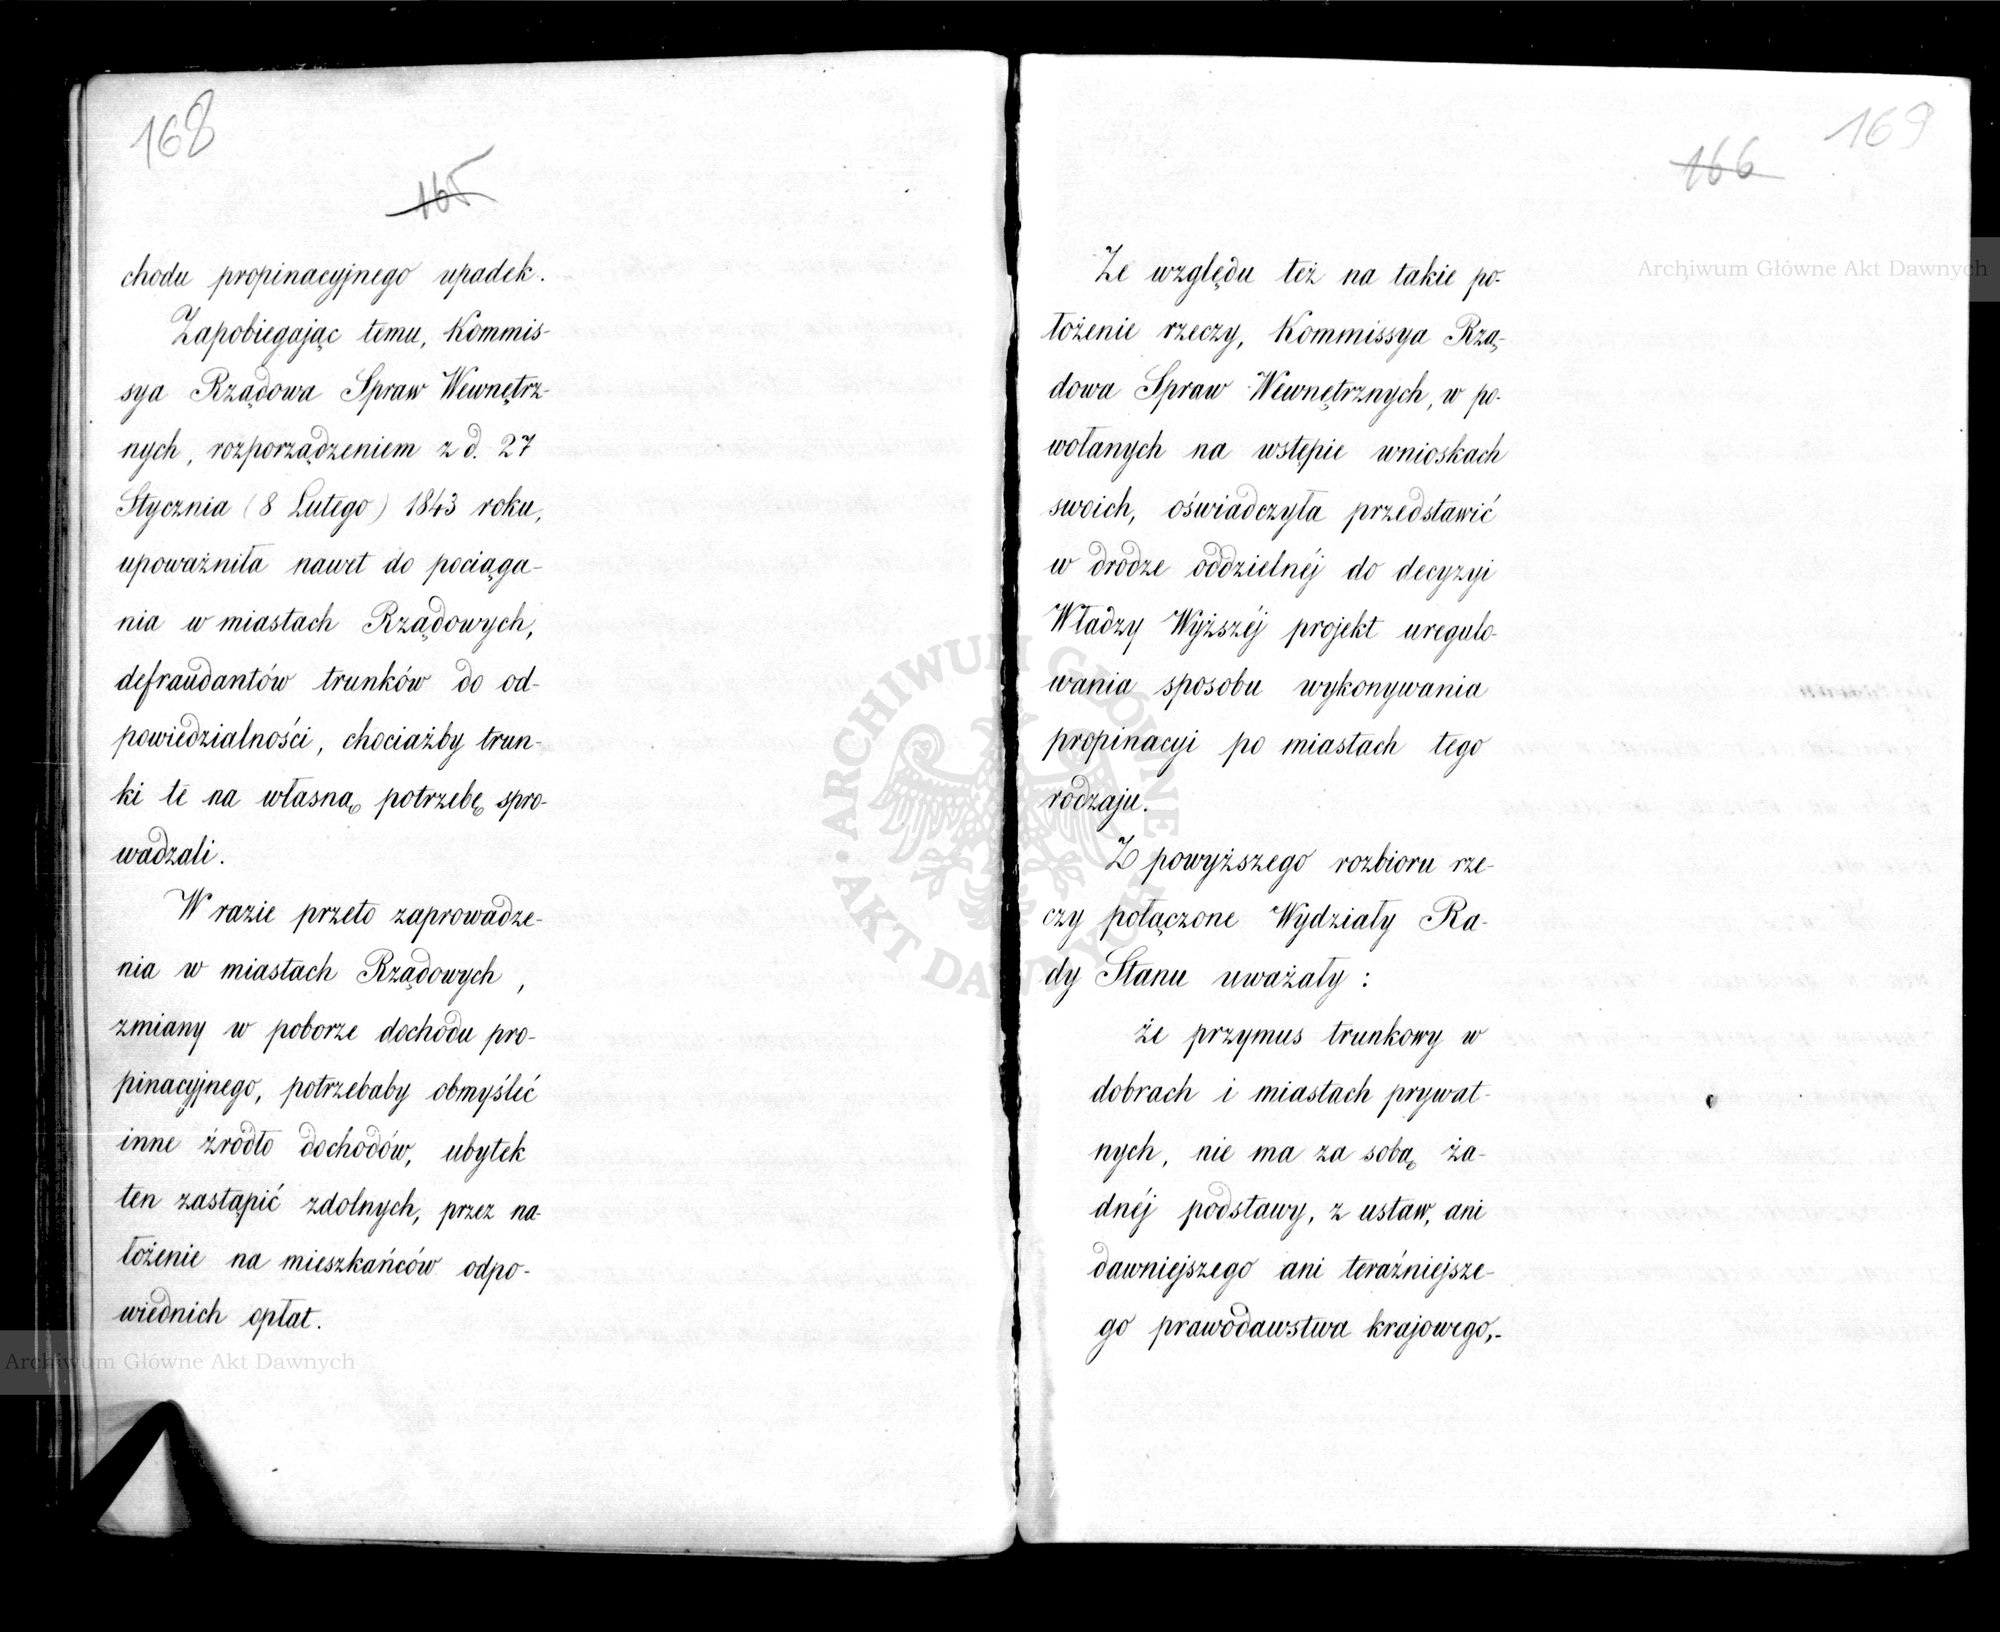 168
165
chodu propinacyjnego upadek.
Zapobiegając temu, Kommis-
sya Rządowa Spraw Wewnętrz-
nych, rozporządzeniem z d. 27
Stycznia (8 Lutego) 1843 roku,
upoważniła nawet do pociąga-
nia w miastach Rządowych,
defraudantów trunków do od-
powiedzialności, chociażby trun-
ki te na własną potrzebę spro-
wadzali.
W razie przeto zaprowadze-
nia w miastach Rządowych,
zmiany w poborze dochodu pro-
pinacyjnego, potrzebaby obmyśleć
inne źródło dochodów, ubytek
ten zastąpić zdolnych, przez na
łożenie na mieszkańców odpo-
wiednich opłat.
169
166
Ze względu też na takie po-
łożenie rzeczy, Kommissya Rzą-
dowa Spraw Wewnętrznych, w po-
wołanych na wstępie wnioskach
swoich, oświadczyła przedstawić
w drodze oddzielnéj do decyzyi
Władzy Wyższéj projekt uregulo-
wania sposobu wykonywania
propinacyi po miastach tego
rodzaju.
Z powyższego rozbioru rze-
czy połączone Wydziały Ra-
dy Stanu uważały:
że przymus trunkowy w
dobrach i miastach prywat-
nych, nie ma za sobą ża-
dnéj podstawy, z ustaw, ani
dawniejszego ani teraźniejsze-
go prawodawstwa krajowego,-
Archiwum Główne Akt Dawnych
Archiwum Główne Akt Dawnych
ARCHIWUM GŁÓWNE AKT DAWNYCH